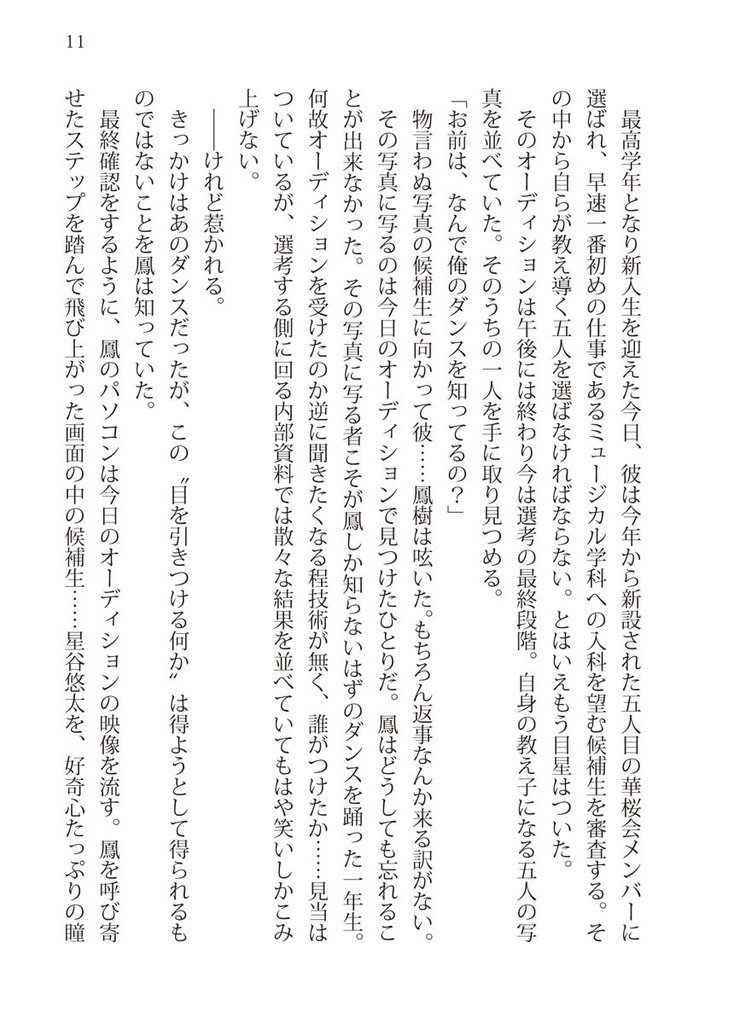 11
最高学年となり新入生を迎えた今日、彼は今年から新設された五人目の華桜会メンバーに
選ばれ、早速一番初めの仕事であるミュージカル学科への入科を望む候補生を審査する。そ
の中から自らが教え導く五人を選ばなければならない。とはいえもう目星はついた。
そのオーディションは午後には終わり今は選考の最終段階。自身の教え子になる五人の写
真を並べていた。そのうちの一人を手に取り見つめる。
「お前は、なんで俺のダンスを知ってるの？」
物言わぬ写真の候補生に向かって彼……鳳樹は呟いた。もちろん返事なんか来る訳がない。
その写真に写るのは今日のオーディションで見つけたひとりだ。鳳はどうしても忘れるこ
とが出来なかった。その写真に写る者こそが鳳しか知らないはずのダンスを踊った一年生。
何故オーディションを受けたのか逆に聞きたくなる程技術が無く、誰がつけたか……見当は
ついているが、選考する側に回る内部資料では散々な結果を並べていてもはや笑いしかこみ
上げない。
――けれど惹かれる。
きっかけはあのダンスだったが、この〝目を引きつける何か〟は得ようとして得られるも
のではないことを鳳は知っていた。
最終確認をするように、鳳のパソコンは今日のオーディションの映像を流す。鳳を呼び寄
せたステップを踏んで飛び上がった画面の中の候補生……星谷悠太を、好奇心たっぷりの瞳